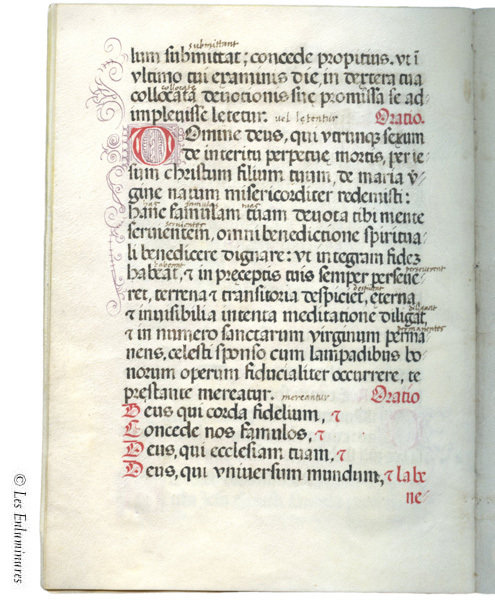 submittant
lum submittat; concede propitius. vt ī
vltimo tui examinis die, in dextera tua
collocate
collocata devotionis sue promissa se ad-
impleuisse letetur. vel letentur Oratio.
Domine deus, qui vtrunqȝ sexum
de interitu perpetue mortis, per ie-
sum christum filium tuum, de maria v̄-
gine natum misericorditer redemisti:
has famulas tuas
hanc famulam tuam devota tibi mente
servientes
servientem, omni benedictione spiritua-
li benedicere dignare: vt integram fidez
habeant perseverent
habeat, et in preceptis tuis semper perseve-
despiciant
ret, terrena et transitoria despiciet, eterna,
diligant
et invisibilia intenta meditatione diligat,
permanentes
et in numero sanctarum virginum perma-
nens, celesti sponso cum lampadibus bo-
norum operum fiducialiter occurrere, te
prestante mereatur. mereantur Oratio
Deus qui corda fidelium, et
Concede nos famulos, et
Deus, qui ecclesiam tuam, et
Deus, qui vniversum mundum, et la be
ne-
© Les Enluminures